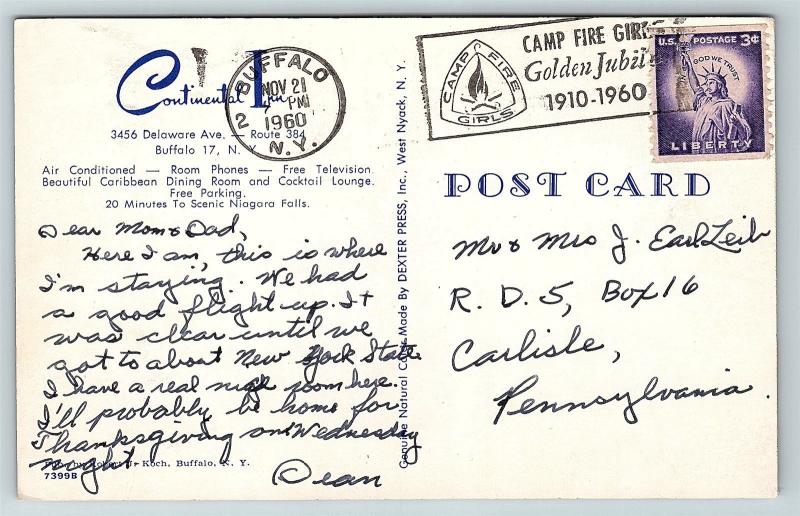 Continental Inn
3456 Delaware Ave. — Route 384
Buffalo 17, N. Y.
Air Conditioned — Room Phones — Free Television
Beautiful Caribbean Dining Room and Cocktail Lounge.
Free Parking.
20 Minutes To Scenic Niagara Falls.
BUFFALO
2
NOV 21
PM
1960
N.Y.
CAMP FIRE GIRLS
CAMP FIRE
Golden Jubil
GIRLS
1910-1960
U.S. POSTAGE 3¢
IN GOD WE TRUST
LIBERTY
Dear Mom & Dad,
Here I am, this is where
I'm staying. We had
a good flight up. It
was clear until we
got to about New York State
I have a real nice room here.
I'll probably be home for
Thanksgiving on Wednesday
night.
Dean
Koch, Buffalo, N. Y.
7399B
Genuine Natural Color Made By DEXTER PRESS, Inc., West Nyack, N. Y.
POST CARD
Mr & Mrs J. Earl Leib
R. D. 5, Box 16
Carlisle,
Pennsylvania.